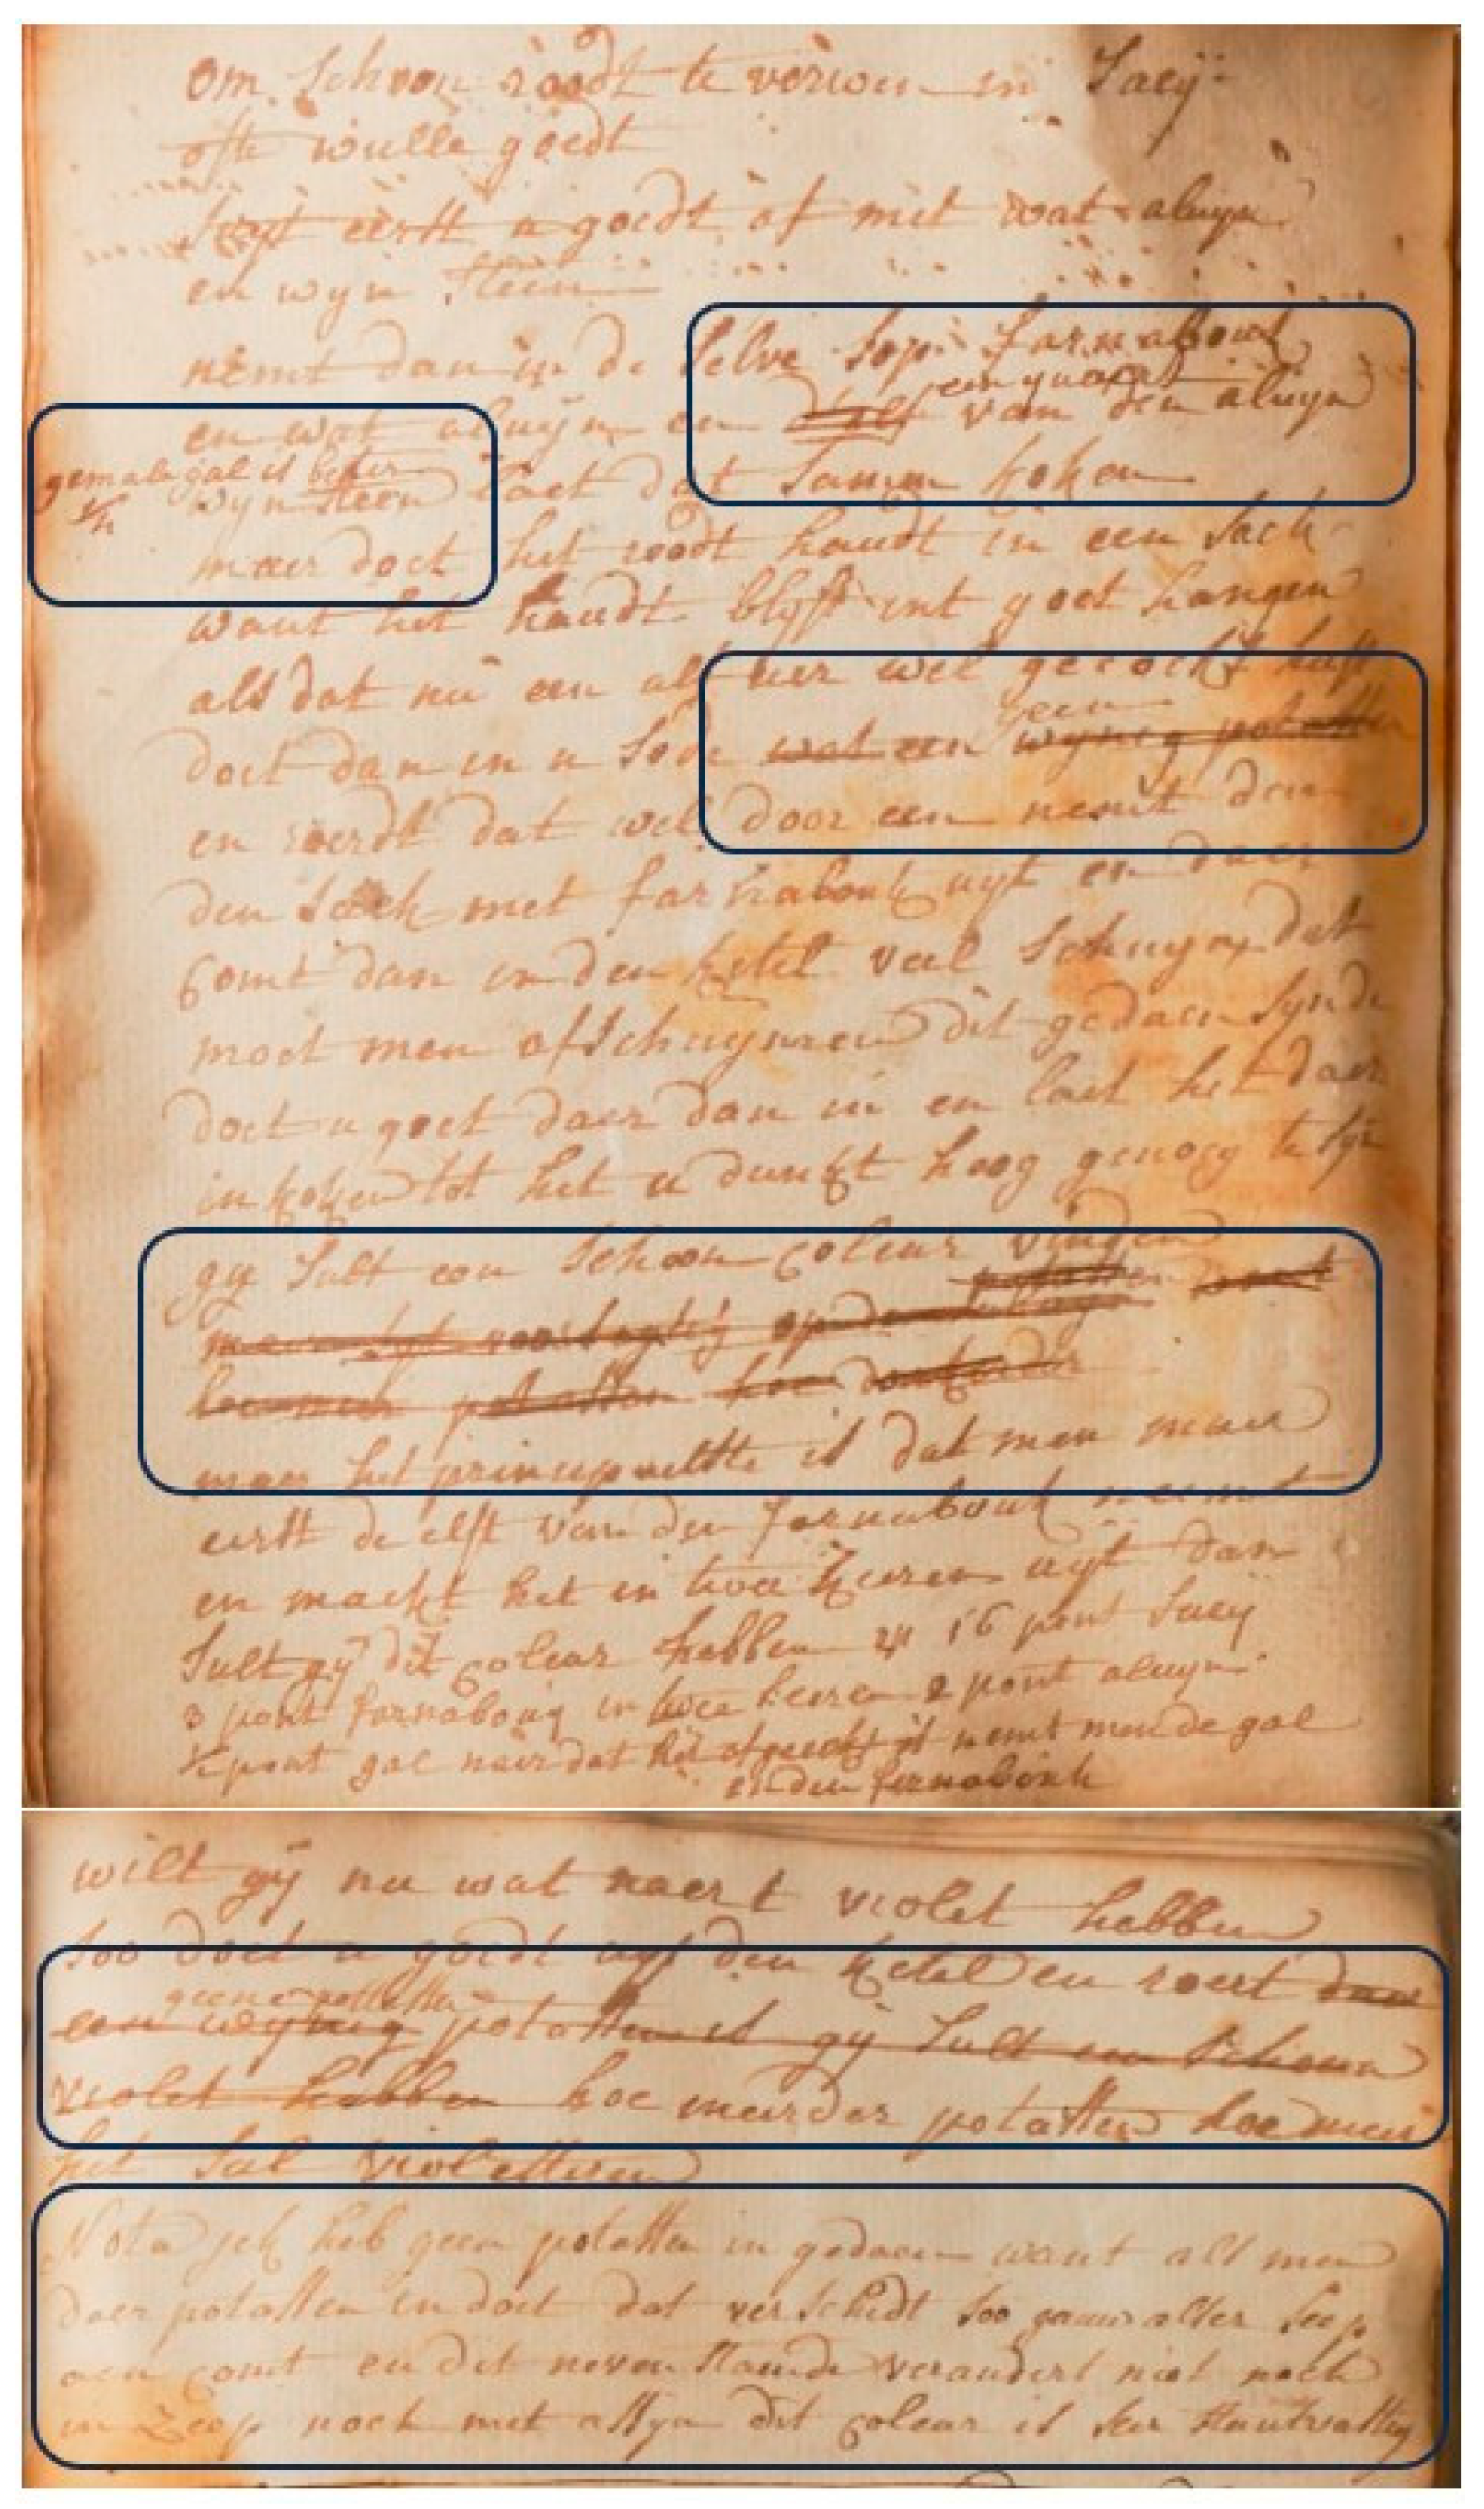 om schoon roodt te verwen in Saeij
ofte wulle goedt
eerst u goedt of met wat aluyn
en wyn steen
nemt dan in de selve sop farnabouck
een quart
en wat aluyn en half van den aluyn
gemale gal is beter
wyn steen laet dat samen koken
maer doet het roodt haudt in een sack
want het haudt blyft int goet hangen
als dat nu een alf uer wel gecockt heft
geen
doet dan in u sop wat een wynig potassen
en roerdt dat wel door een nemt den
den sack met farnabouk uyt en daer
comt dan in den ketel veel schuym dat
moet men afschuymen dit gedaen synde
doet u goet daer dan in en laet het daer
in koken tot het u dunkt hoog genoeg te syn
gy sult een schoon coleur vinden
potassen want
maer syt voorsigtig op den
hoe meer potassen hoe donkerder
maer het principaelste is dat men maer
eerst de elft van den farnabouk neemt
en maekt het in twee keeren uyt dan
sult gy dit coleur hebben op 16 pont Saeij
3 pont farnabouq in twee keeren 2 pont aluyn
1/2 pont gal naer dat het afgeeckt is nemt men de gal
en den farnabouk
wilt gij nu wat naer t violet hebben
soo doet u goedt uyt den ketel en roert daer
geene potassen
een weynig potassen il gij sult een schoon
violet hebben hoe meerder potassen hoe meer
het sal violetteren
Nota jck heb geen potassen in gedaen want als men
daer potassen in doet dat verschidt soo gauw alser seep
aen comt en dit neven staende verandert niet noch
in zeep noch met assyn dit coleur is seer stantvastig